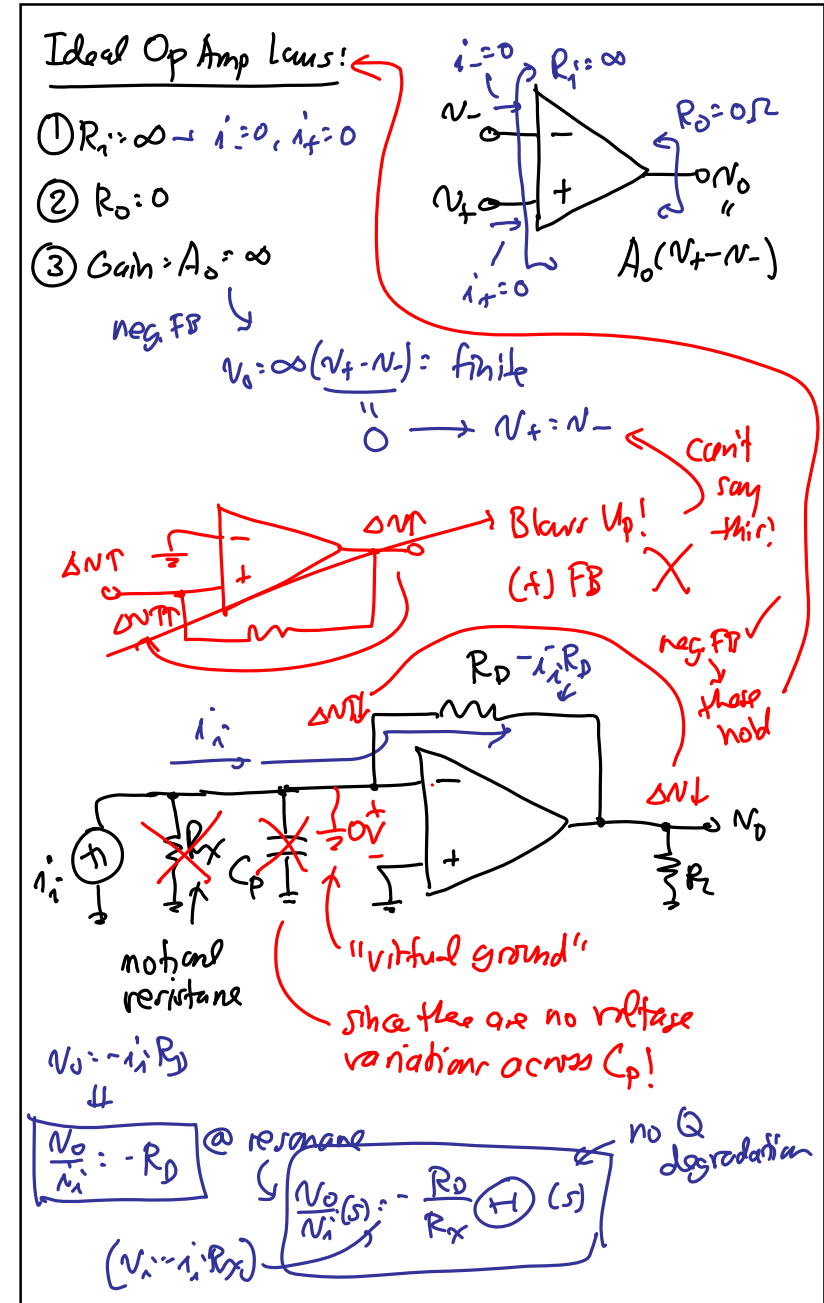 Ideal Op Amp Laws!
① Ri = ∞ → i-=0, i+=0
② Ro = 0
③ Gain = Ao = ∞
neg. FB
vo = ∞(v+ - v-) = finite
"
0 → v+ = v-
i-=0
Ri = ∞
v-
-
Ro = 0Ω
v+
+
vo
"
i+=0
Ao(v+-v-)
can't
say
this!
Δv↑
-
+
Δv↑
Δv↑↑
Blows Up!
(+) FB
neg. FB ✓
these
hold
RD
-iiRD
Δv↓
ii
Δv↓
-
+
ii
Rx
Cp
+
0V
-
vo
RL
motional
resistance
"virtual ground"
since there are no voltage
variations across Cp!
vo = -iiRD
⇓
vo/ii = -RD
@ resonance
vo/vi (s) = - RD/Rx Ⓗ (s)
no Q
degradation
(vi = iiRx)